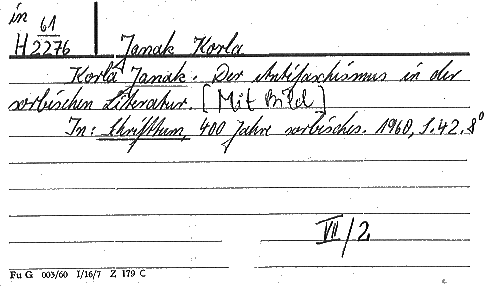 in
61
H 2276
Janak Korla
Korla Janak. Der Antifaschismus in der
sorbischen Literatur. [Mit Bild]
In: Schrifttum, 400 Jahre sorbisches. 1960, S. 42. 8°
VII/2
Fu G 003/60 I/16/7 Z 179 C